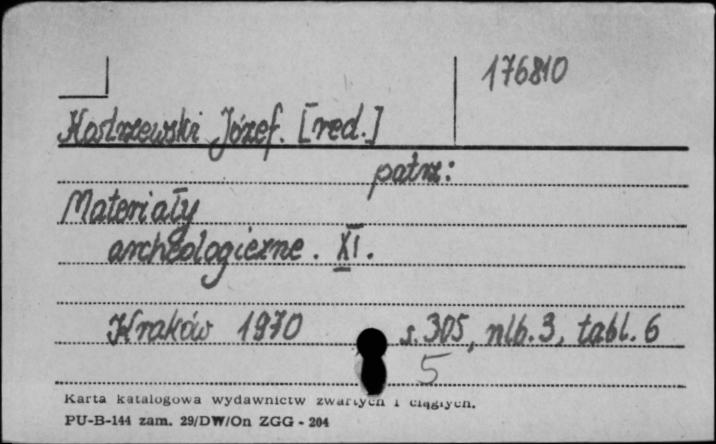 176810
Kostrzewski Józef. [red.]
patrz:
Materiały
archeologiczne. XI.
Kraków 1970 s. 305, nlb. 3, tabl. 6
5
Karta katalogowa wydawnictw zwartych i ciągłych.
PU-B-144 zam. 29/DW/On ZGG - 204